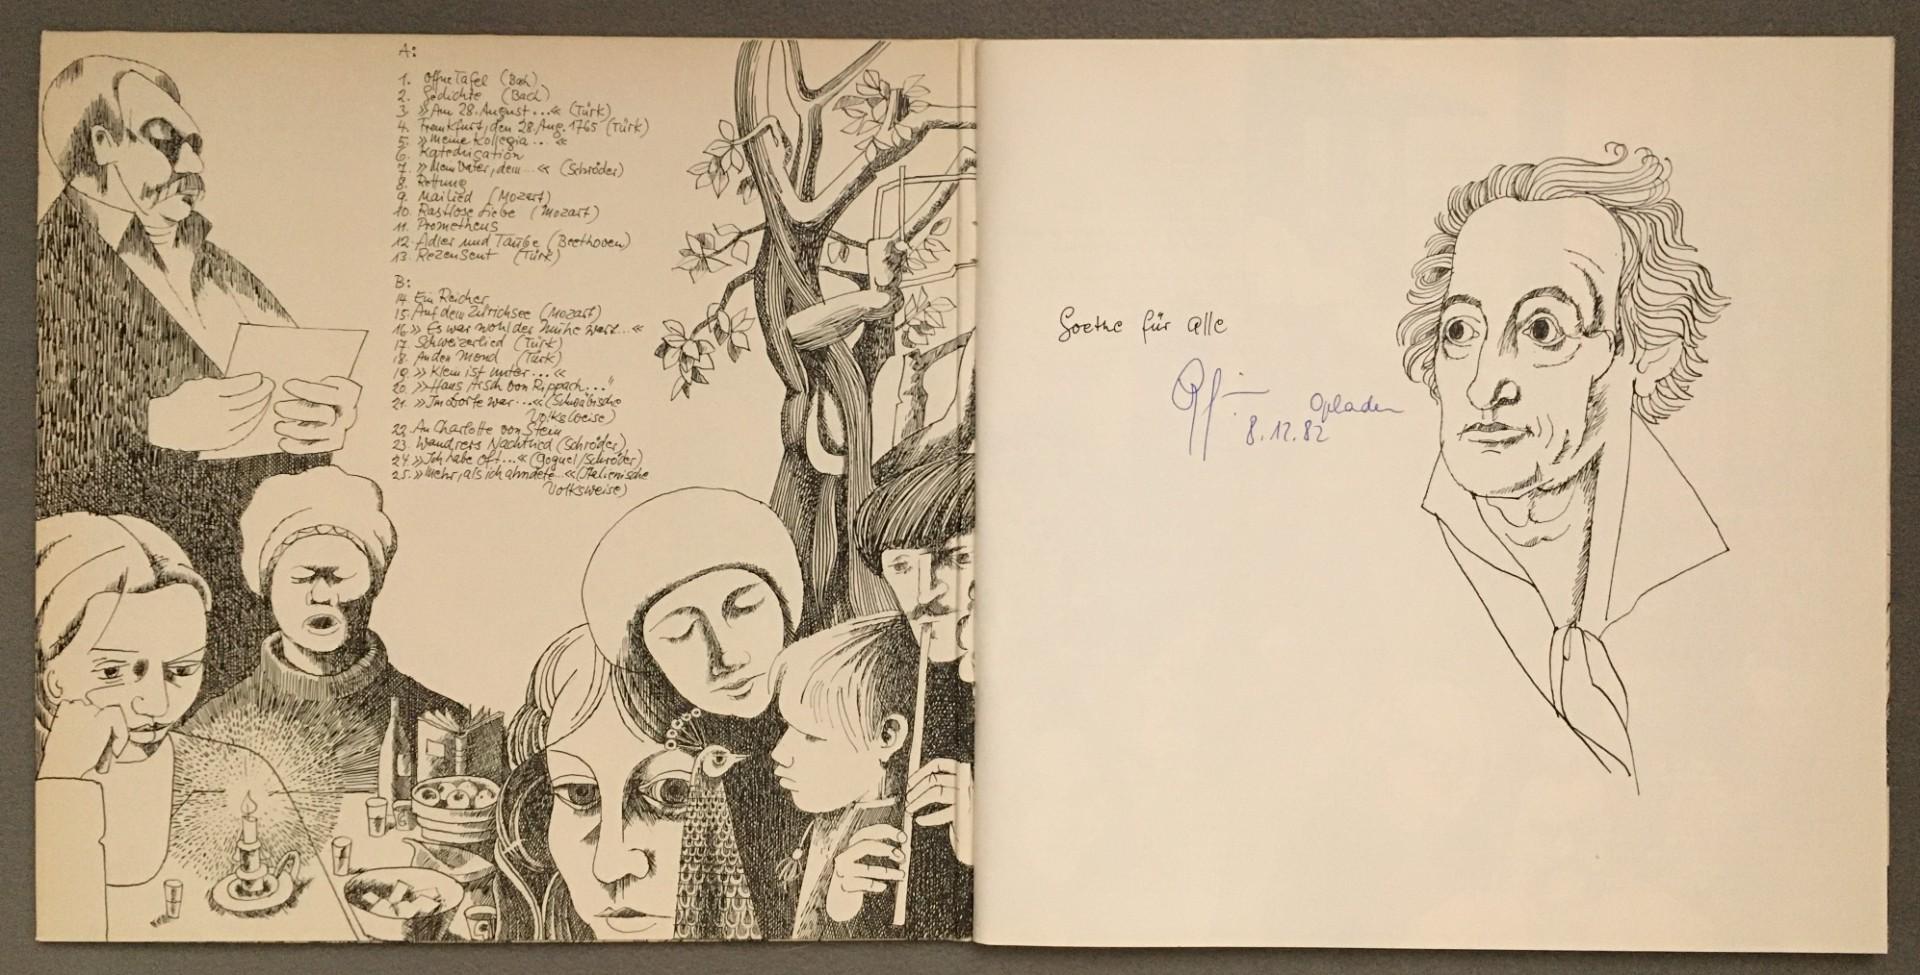 A:
1. Offne Tafel (Bach)
2. Gedichte (Bach)
3. »Am 28. August...« (Türk)
4. Frankfurt, den 28. Aug. 1765 (Türk)
5. »Meine Kollegia...«
6. Katechisation
7. »Mein Vater, dem...« (Schröder)
8. Rettung
9. Mailied (Mozart)
10. Rastlose Liebe (Mozart)
11. Prometheus
12. Adler und Taube (Beethoven)
13. Rezensent (Türk)
B:
14. Ein Reicher
15. Auf dem Zürichsee (Mozart)
16. »Es war wohl der Mühe wert...«
17. Schweizerlied (Türk)
18. An den Mond (Türk)
19. »Klein ist unter...«
20. »Hans Arsch von Rippach..."
21. »Im Dorfe war...« (Schwäbische
Volksweise)
22. An Charlotte von Stein
23. Wandrers Nachtlied (Schröder)
24. »Ich habe oft...« (Goguel/Schröder)
25. »Mehr, als ich ahndete...« (Italienische
Volksweise)
Goethe für alle
Opladen
8.12.82